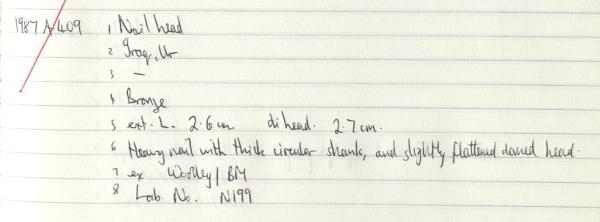 1987 A/409 1 Nail head
2 Iraq, Ur
3 —
4 Bronze
5 ext. L. 2.6 cm di head. 2.7 cm.
6 Heavy nail with thick circular shank, and slightly flattened domed head.
7 ex Woolley / BM
8 Lab No. N199